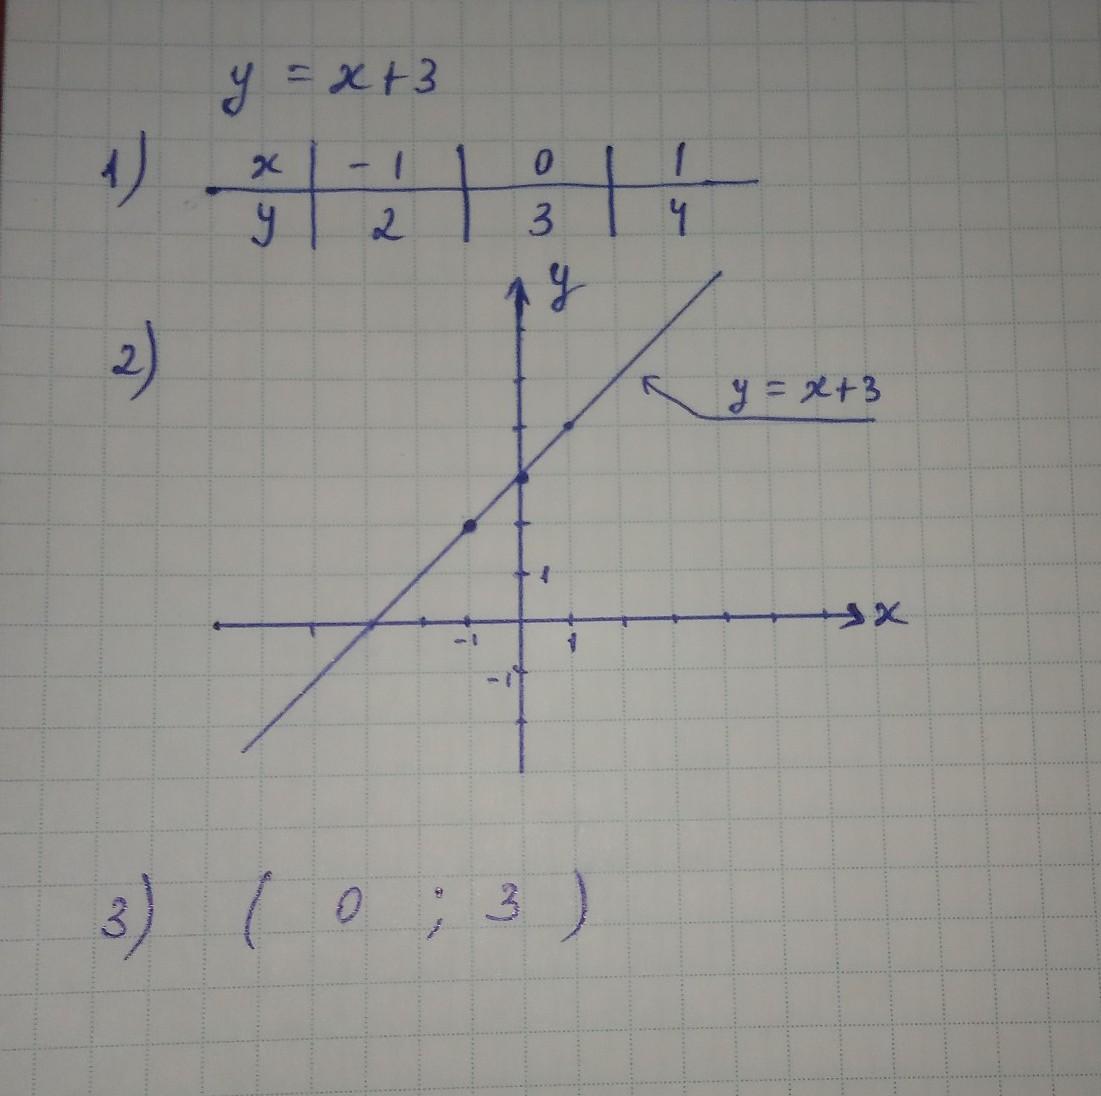 y = x+3
1) x | -1 | 0 | 1
y | 2 | 3 | 4
y
2)
y = x+3
1
x
-1 1
-1
3) ( 0 ; 3 )